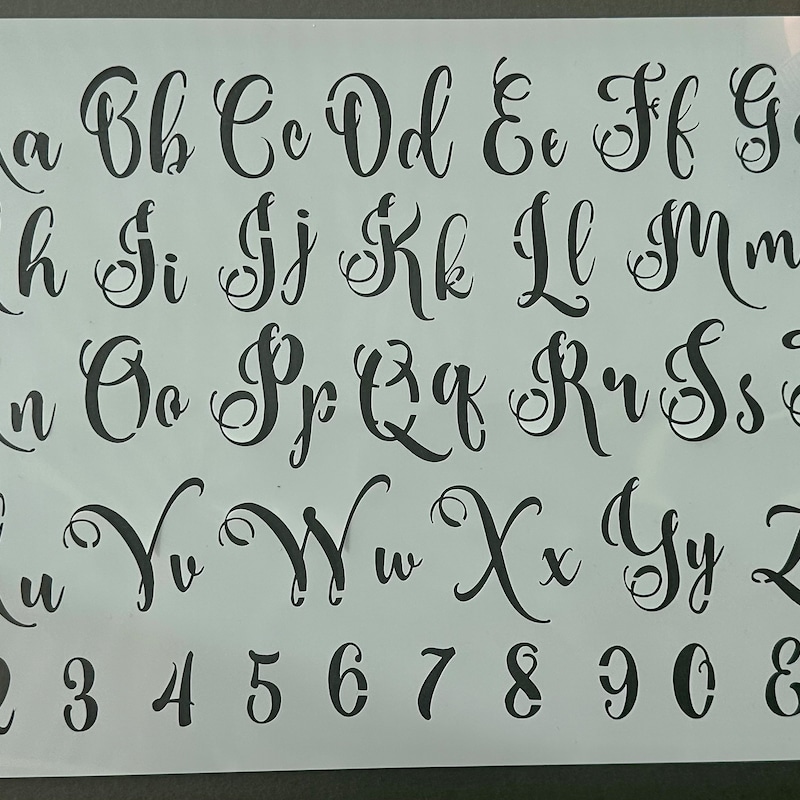 a Bb Cc Dd Ee Ff G
h Ii Jj Kk Ll Mm
n Oo Pp Qq Rr Ss
u Vv Ww Xx Yy Z
2 3 4 5 6 7 8 9 0 &